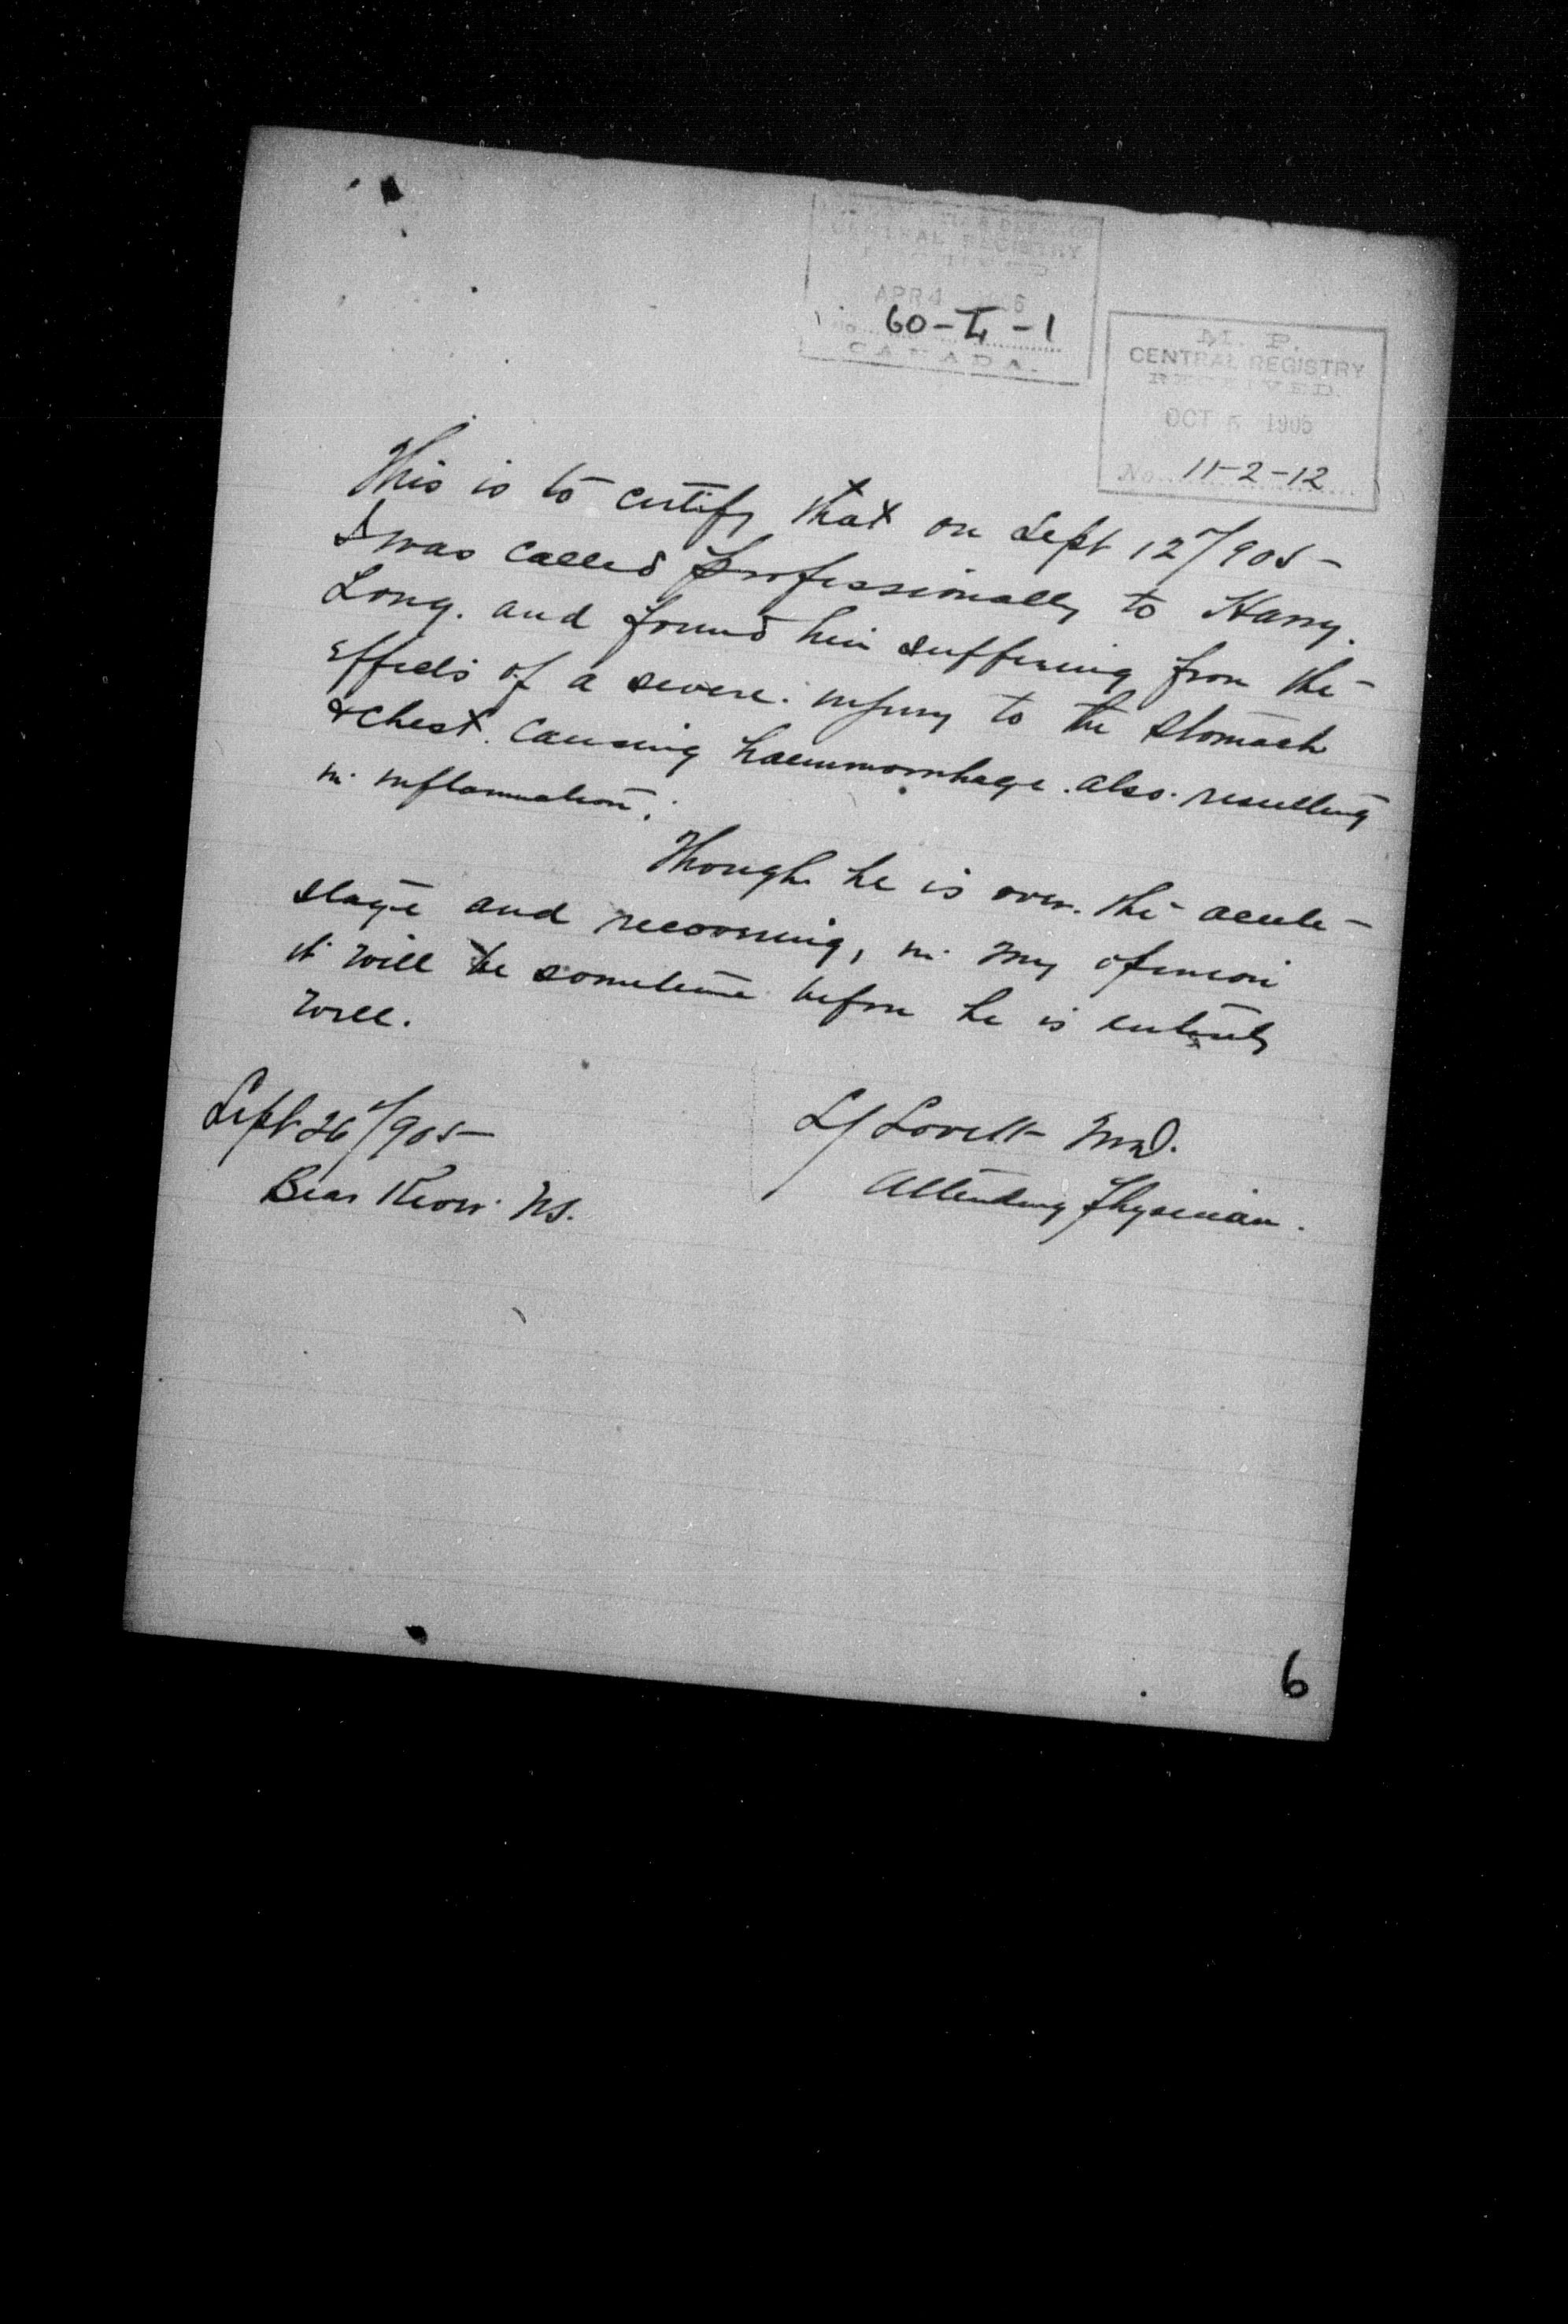 CENTRAL REGISTRY
APR 4 6
No. 60-L-1
CANADA.
M. P.
CENTRAL REGISTRY
RECEIVED.
OCT 5 1905
No. 11-2-12
This is to certify that on Sept 12th/905-
I was called professionally to Harry.
Long. and found him suffering from the-
effects of a severe. injury to the stomach
& chest. causing haemmorrhage. also. resulting
in inflammation.
Though he is over. the acute-
stage and recovering, in my opinion
it will be sometime before he is entirely
well.
Sept 26th/905-
Bear River. N.S.
LJ Lovett MD.
Attending Physician.
6